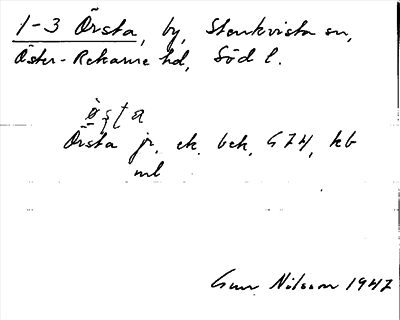 1-3 Örsta, by, Stenkvista sn,
Öster-Rekarne hd, Söd l.
Örsta jr. ek. bek. G 74, kb
ml
Gun Nilsson 1947